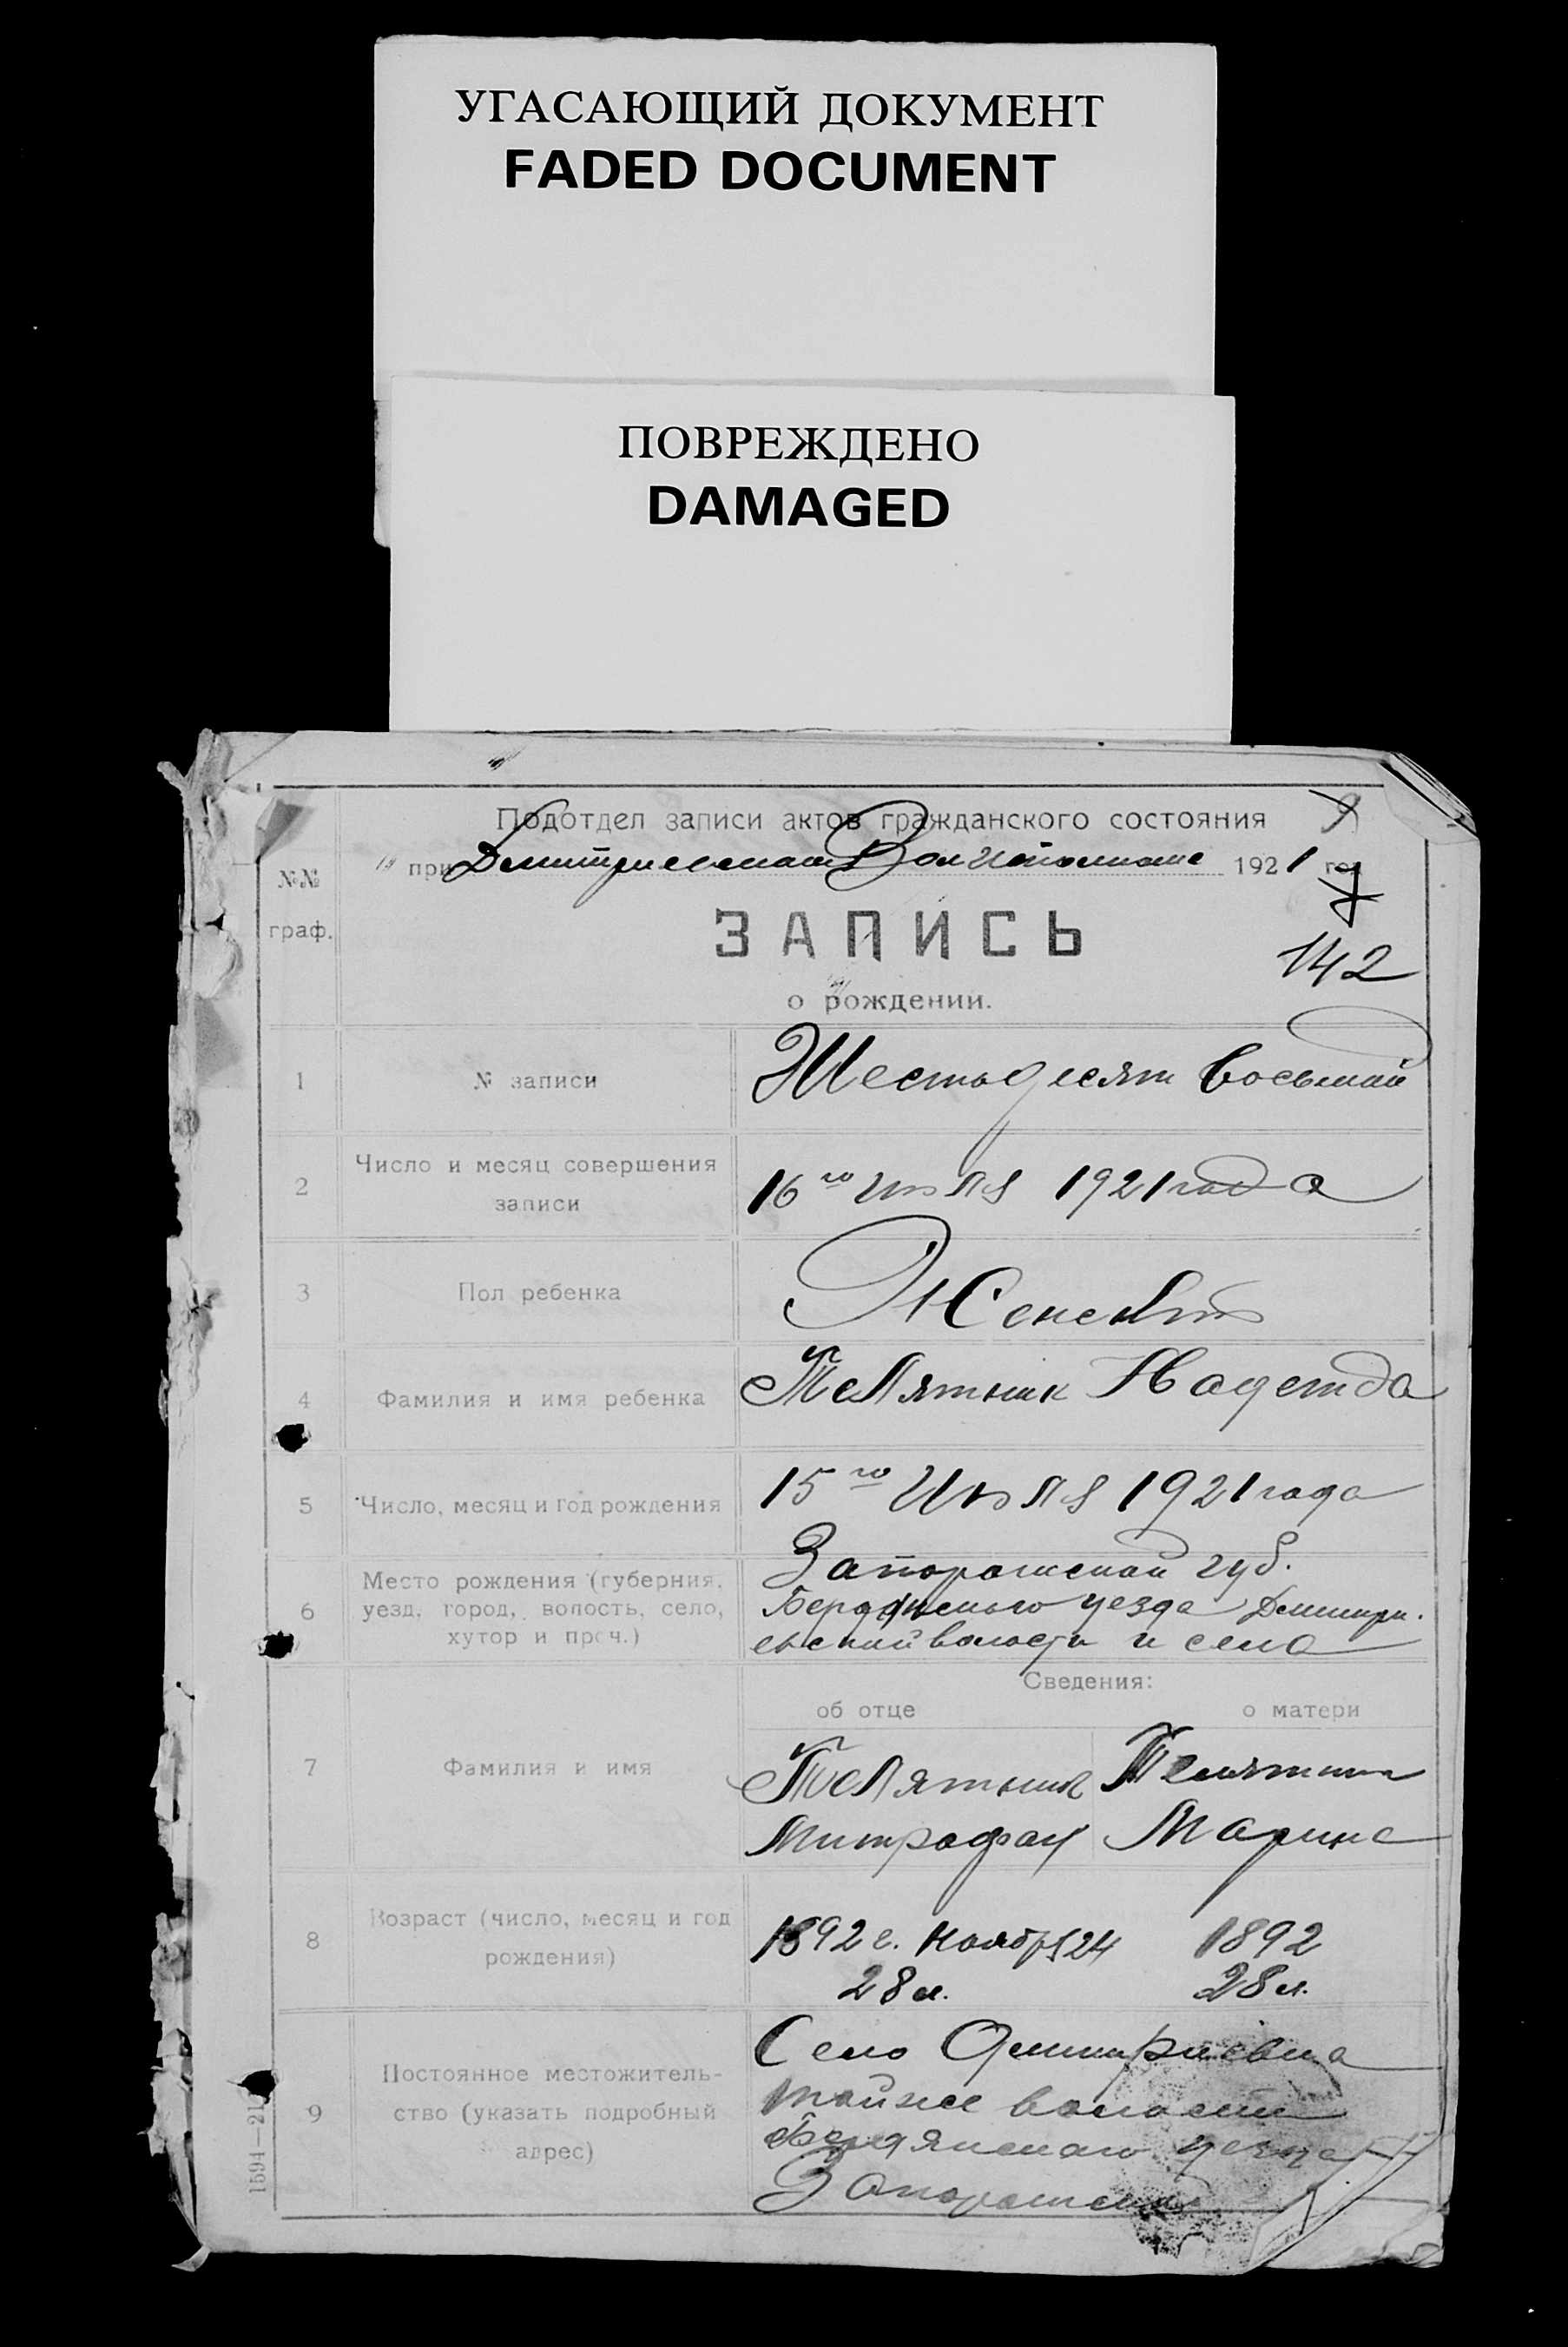 УГАСАЮЩИЙ ДОКУМЕНТ
FADED DOCUMENT
ПОВРЕЖДЕНО
DAMAGED
Подотдел записи актов гражданского состояния
при Дмитриевском Вол Исполкоме 1921 год
№№
граф.
ЗАПИСЬ
142
о рождении.
1 № записи Шестьдесят восьмой
2 Число и месяц совершения
записи
16го Июля 1921 года
3 Пол ребенка Женский
4 Фамилия и имя ребенка Телятник Надежда
5 Число, месяц и год рождения 15го Июля 1921 года
6 Место рождения (губерния,
уезд, город, волость, село,
хутор и проч.)
Запорожской губ.
Бердянского уезда Дмитри.
евской волости и села
Сведения:
об отце о матери
7 Фамилия и имя
Телятник Телятник
Митрофан Марина
8 Возраст (число, месяц и год
рождения)
1892 г. Ноября 24 1892
28 л. 28 л.
9 Постоянное местожитель-
ство (указать подробный
адрес)
Село Дмитриевка
тойже волости
Бердянского уезда
Запорожской
1594—21